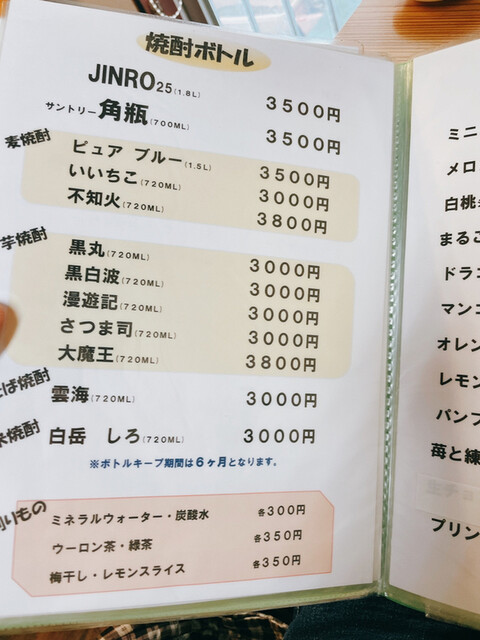 焼酎ボトル
JINRO25(1.8L) 3500円
サントリー角瓶(700ML) 3500円
麦焼酎
ピュア ブルー(1.5L) 3500円
いいちこ(720ML) 3000円
不知火(720ML) 3800円
芋焼酎
黒丸(720ML) 3000円
黒白波(720ML) 3000円
漫遊記(720ML) 3000円
さつま司(720ML) 3000円
大魔王(720ML) 3800円
ば焼酎
雲海(720ML) 3000円
焼酎
白岳 しろ(720ML) 3000円
※ボトルキープ期間は6ヶ月となります。
りもの
ミネラルウォーター・炭酸水 各300円
ウーロン茶・緑茶 各350円
梅干し・レモンスライス 各350円
ミニ
メロ
白桃
まるご
ドラゴ
マンゴ
オレン
レモン
パンプ
苺と練
プリン